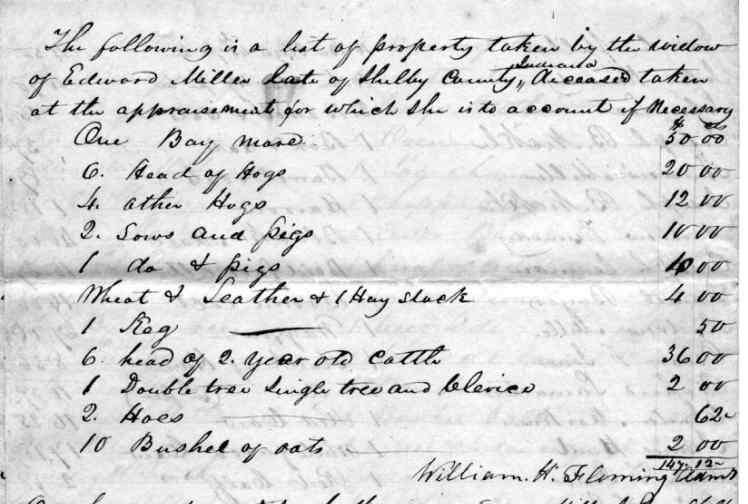 The following is a list of property taken by the widow
of Edward Miller Late of Shelby County, Indiana Deceased taken
at the appraisement for which she is to account if Necessary
$ cts
One Bay mare 50 00
6. Head of Hogs 20 00
4. other Hogs 12 00
2. Sows and pigs 10 00
1 do & pigs 10 00
Wheat & Leather & 1 Hay stack 4 00
1 Keg 50
6. head of 2. year old cattle 36 00
1 Double tree Single tree and Clevice 2 00
2. Hoes 62
10 Bushel of oats 2 00
147. 12
William. H. Fleming Admr